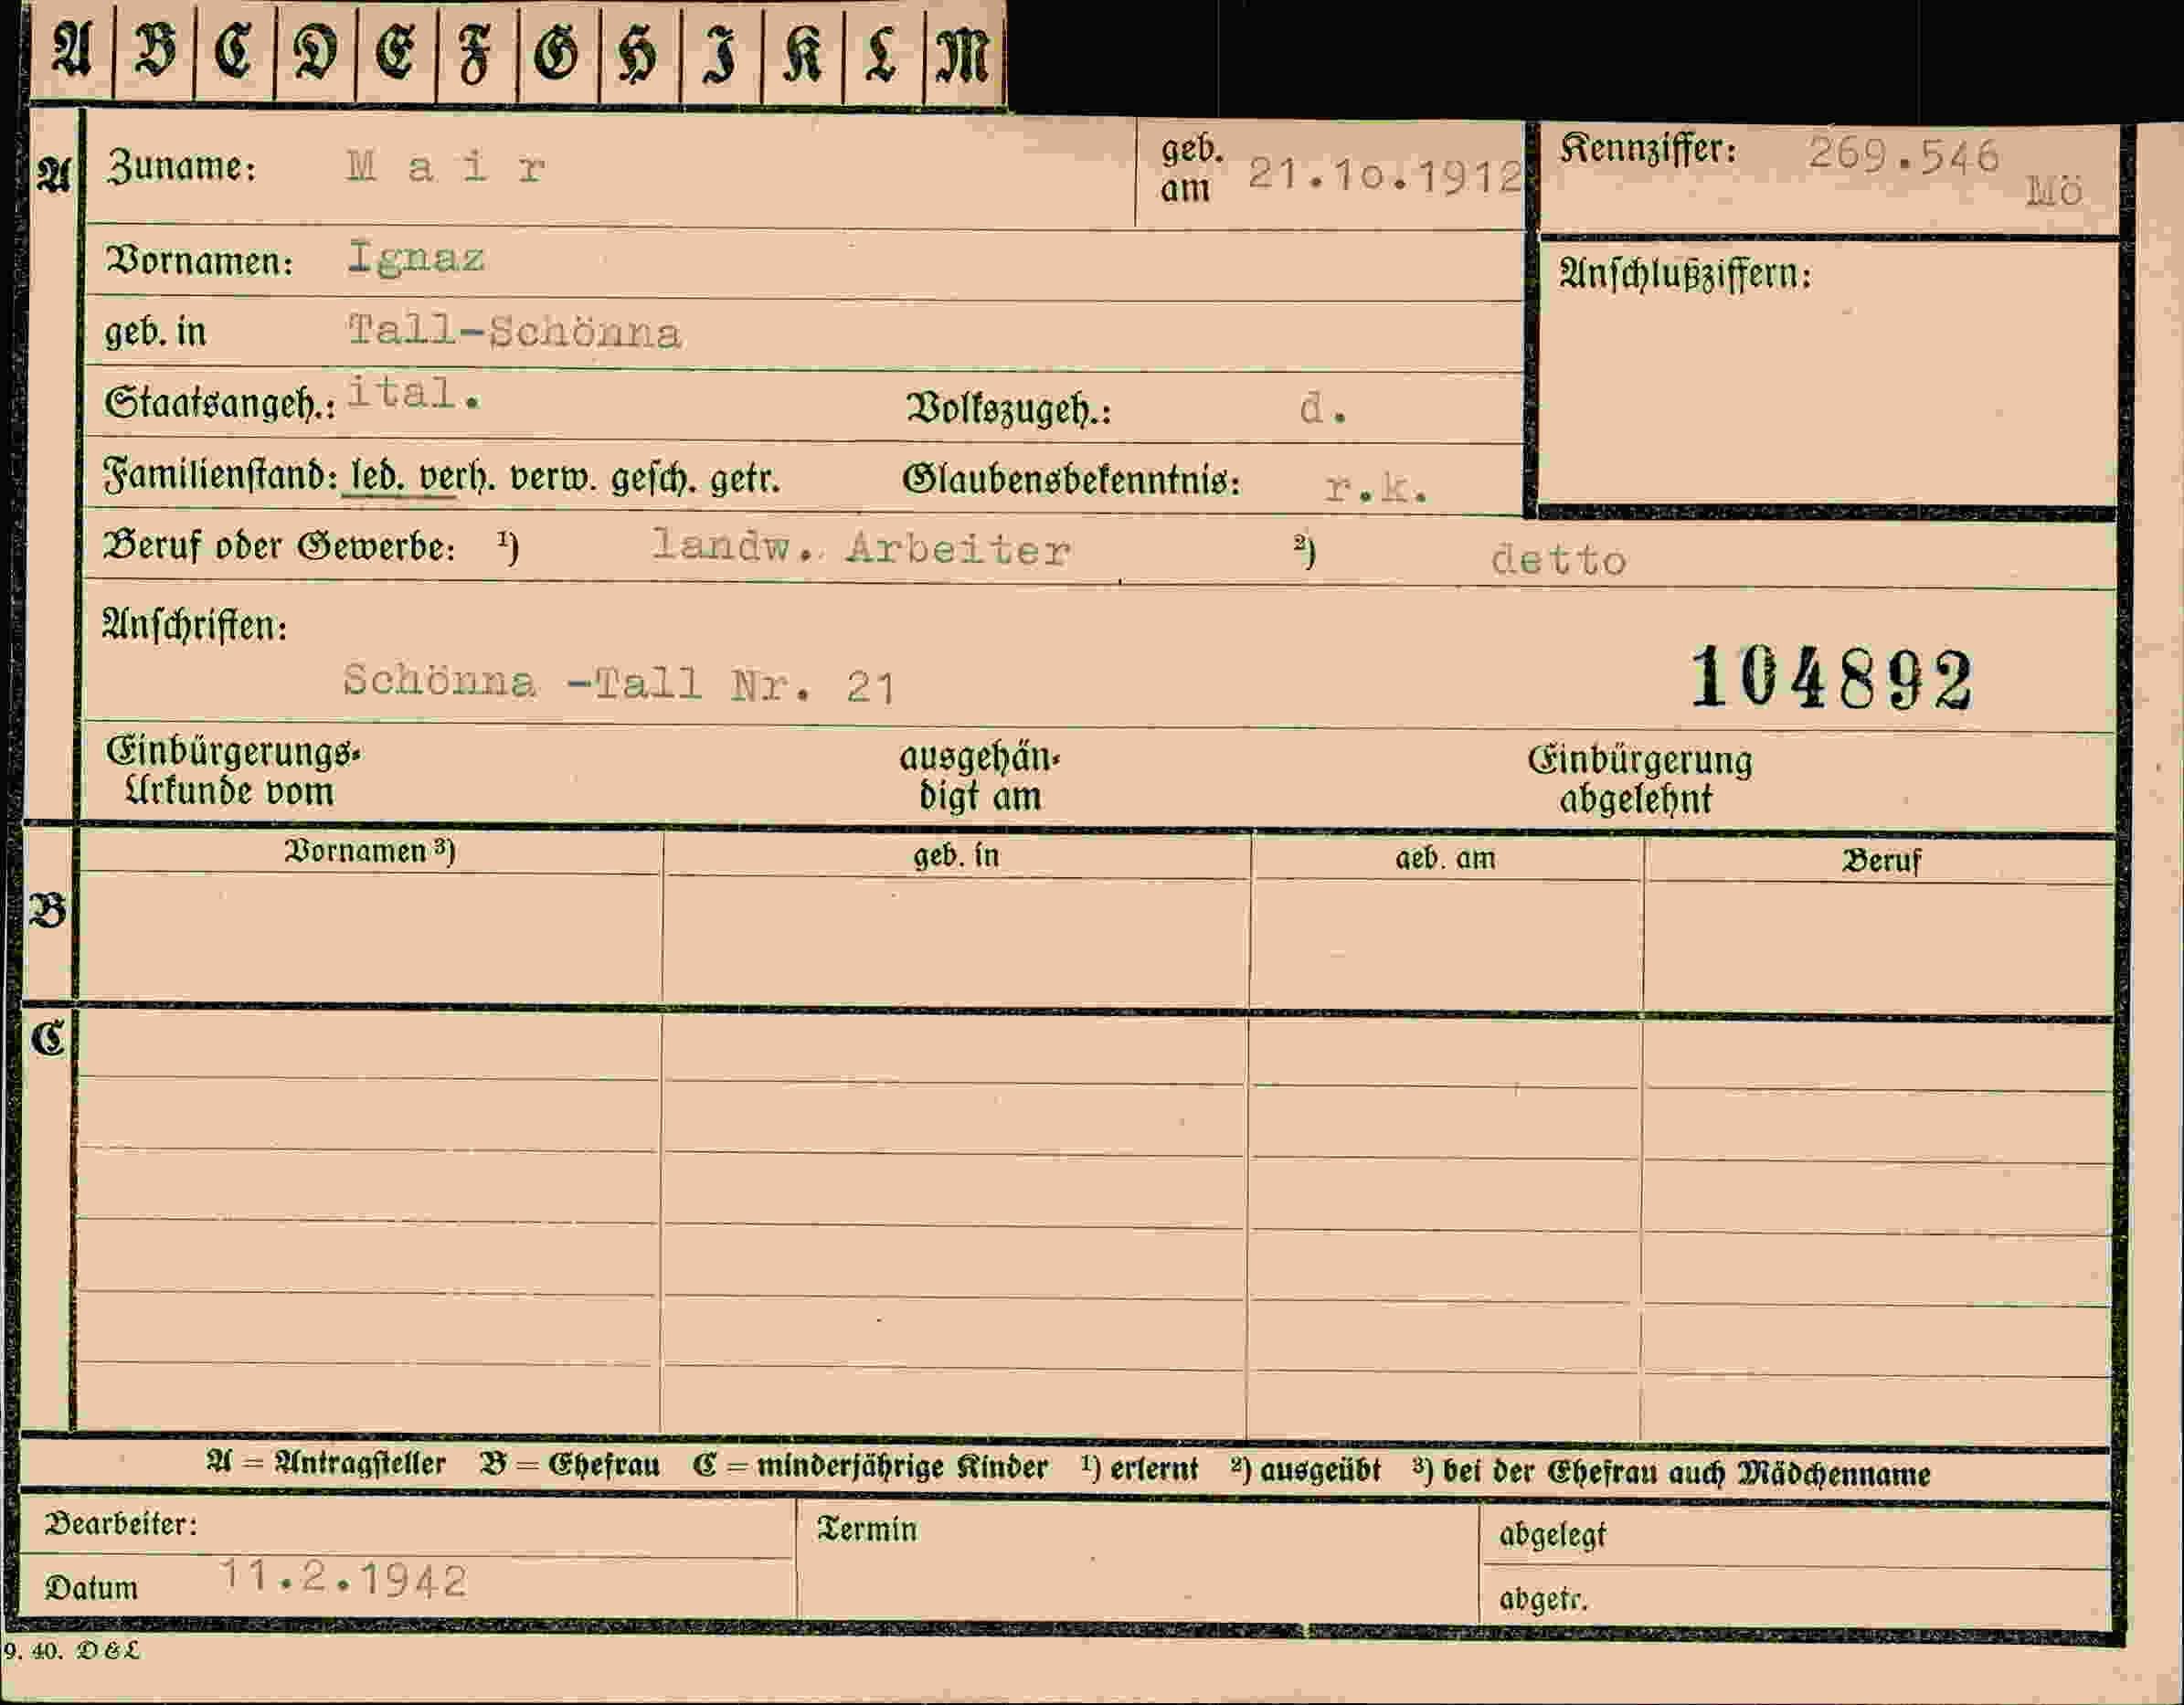 A B C D E F G H I K L M
A Zuname: Mair geb. am 21.1o.1912 Kennziffer: 269.546 Mö
Vornamen: Ignaz Anschlußziffern:
geb. in Tall-Schönna
Staatsangeh.: ital. Volkszugeh.: d.
Familienstand: led. verh. verw. gesch. getr. Glaubensbekenntnis: r.k.
Beruf oder Gewerbe: ¹) landw. Arbeiter ²) detto
Anschriften:
Schönna -Tall Nr. 21 104892
Einbürgerungs- ausgehän- Einbürgerung
Urkunde vom digt am abgelehnt
Vornamen ³) geb. in geb. am Beruf
B
C
A = Antragsteller B = Ehefrau C = minderjährige Kinder ¹) erlernt ²) ausgeübt ³) bei der Ehefrau auch Mädchenname
Bearbeiter: Termin abgelegt
Datum 11.2.1942 abgetr.
9. 40. D&L